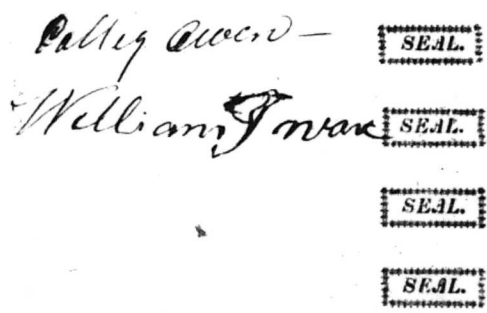 Colley Owen — SEAL.
William SEAL.
SEAL.
SEAL.